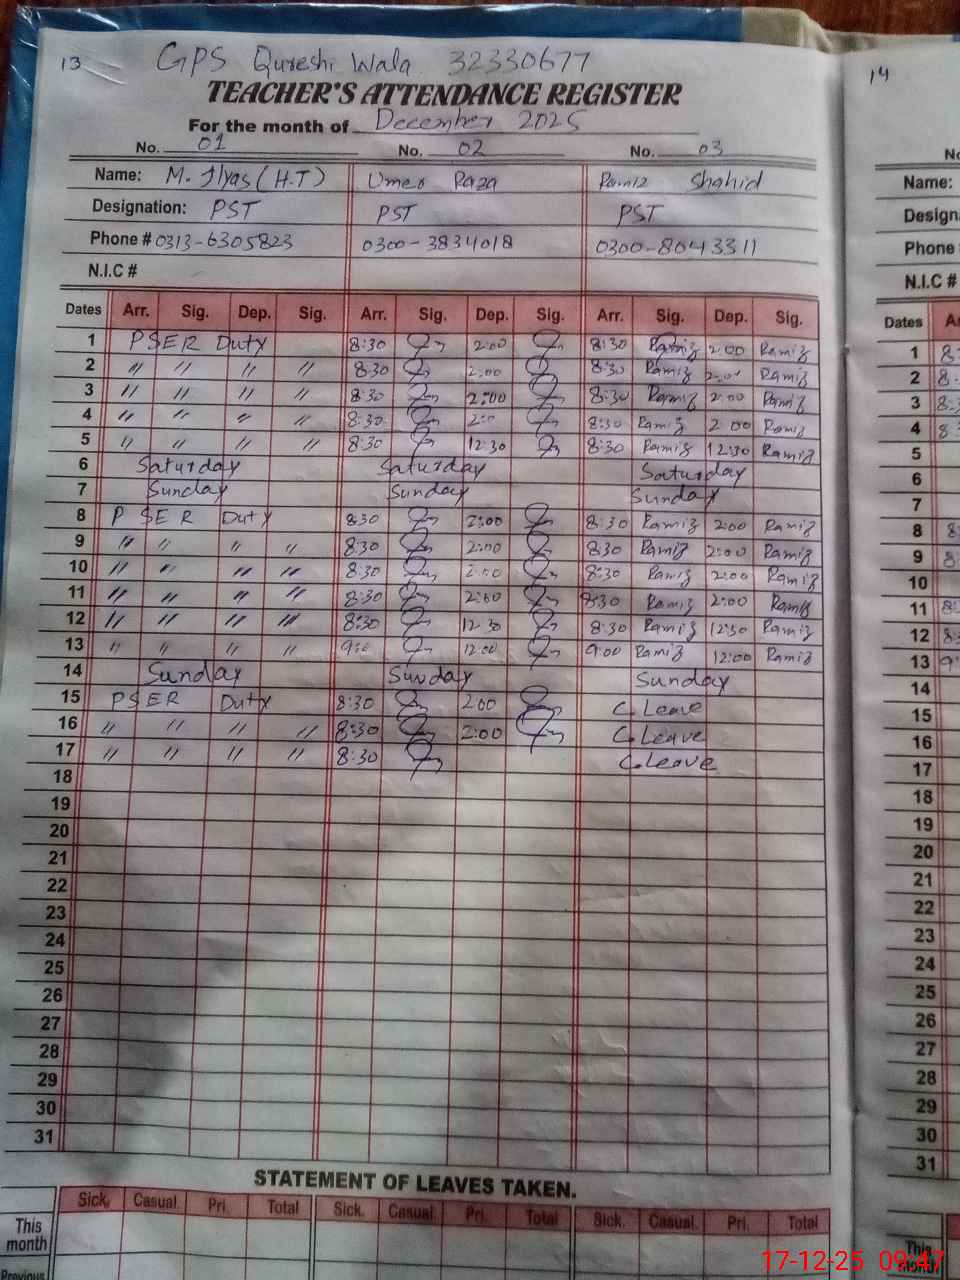 13 GPS Qureshi Wala 32330677
TEACHER'S ATTENDANCE REGISTER
For the month of December 2025
No. 01 No. 02 No. 03
Name: M. Ilyas (H.T) Umer Raza Ramiz Shahid
Designation: PST PST PST
Phone # 0313-6305823 0300-3834018 0300-8043311
N.I.C #
Dates Arr. Sig. Dep. Sig. Arr. Sig. Dep. Sig. Arr. Sig. Dep. Sig.
1 PSER Duty 8:30 2:00 8:30 Ramiz 2:00 Ramiz
2 " " " " 8:30 2:00 8:30 Ramiz 2:00 Ramiz
3 " " " " 8:30 2:00 8:30 Ramiz 2:00 Ramiz
4 " " " " 8:30 2:0 8:30 Ramiz 2:00 Ramiz
5 " " " " 8:30 12:30 8:30 Ramiz 12:30 Ramiz
6 Saturday Saturday Saturday
7 Sunday Sunday Sunday
8 PSER Duty 8:30 2:00 8:30 Ramiz 2:00 Ramiz
9 " " " " 8:30 2:00 8:30 Ramiz 2:00 Ramiz
10 " " " " 8:30 2:00 8:30 Ramiz 2:00 Ramiz
11 " " " " 8:30 2:00 8:30 Ramiz 2:00 Ramiz
12 " " " " 8:30 12:30 8:30 Ramiz 12:30 Ramiz
13 " " " " 9:0 12:00 9:00 Ramiz 12:00 Ramiz
14 Sunday Sunday Sunday
15 PSER Duty 8:30 2:00 C.Leave
16 " " " " 8:30 2:00 C.Leave
17 " " " " 8:30 C.leave
18
19
20
21
22
23
24
25
26
27
28
29
30
31
STATEMENT OF LEAVES TAKEN.
Sick. Casual. Pri. Total Sick. Casual. Pri. Total Sick. Casual. Pri. Total
This month
Previous
14
Name:
Phone #
N.I.C #
Dates
1
2
3
4
5
6
7
8
9
10
11
12
13
14
15
16
17
18
19
20
21
22
23
24
25
26
27
28
29
30
31
This month
17-12-25 09:47